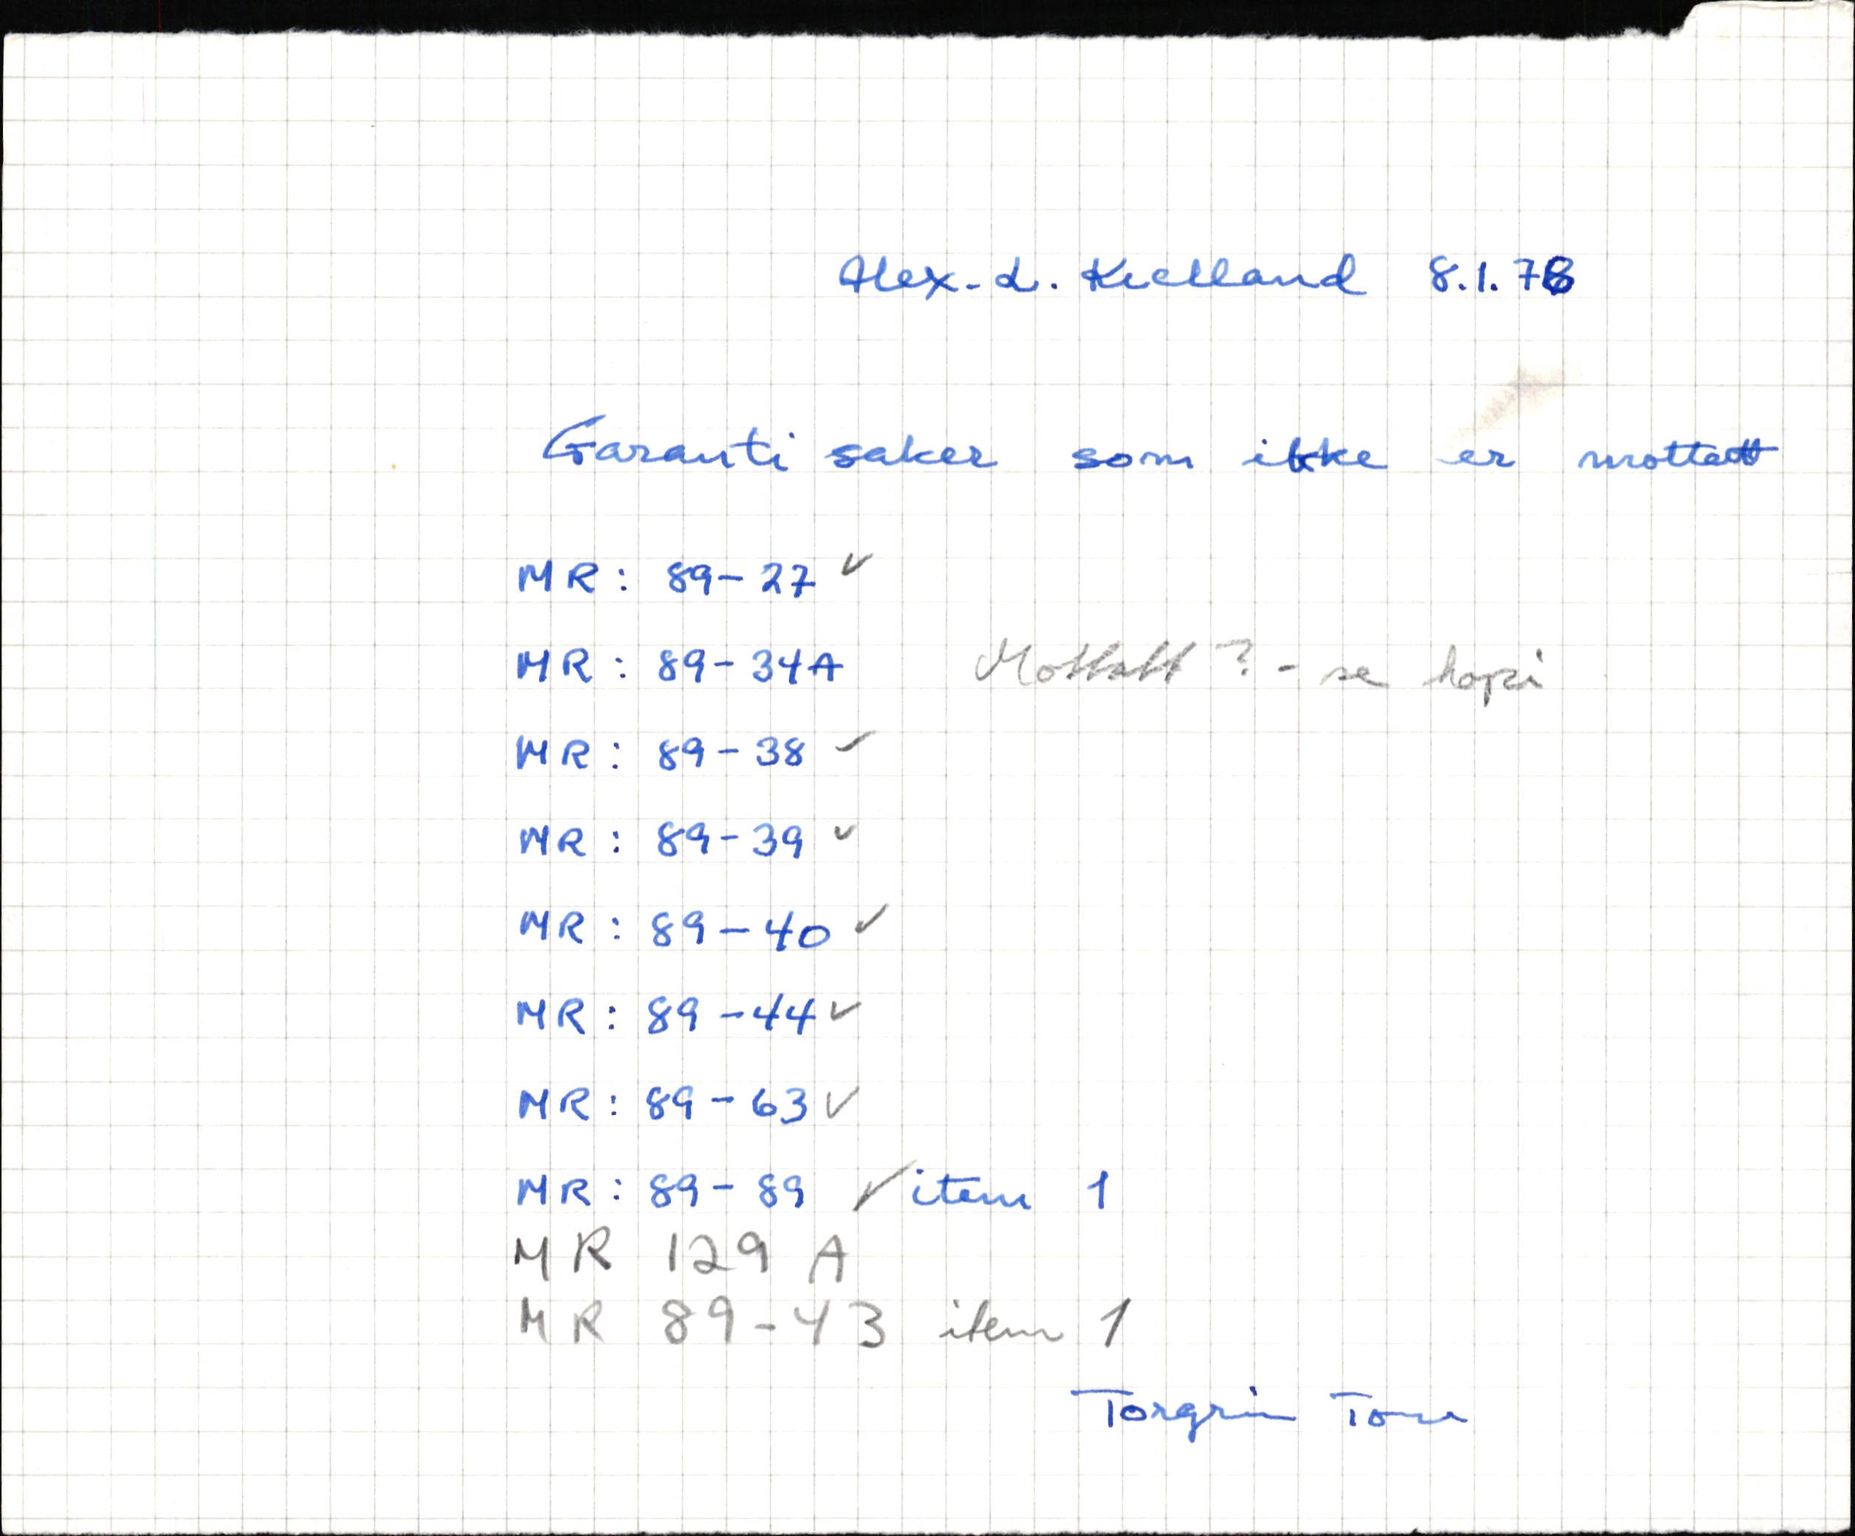 Alex. L. Kielland 8.1.78
Garanti saker som ikke er mottatt
MR: 89-27 ✓
MR: 89-34A Mottatt? - se kopi
MR: 89-38 ✓
MR: 89-39 ✓
MR: 89-40 ✓
MR: 89-44 ✓
MR: 89-63 ✓
MR: 89-89 ✓ item 1
MR 129 A
MR 89-43 item 1
Torgrim